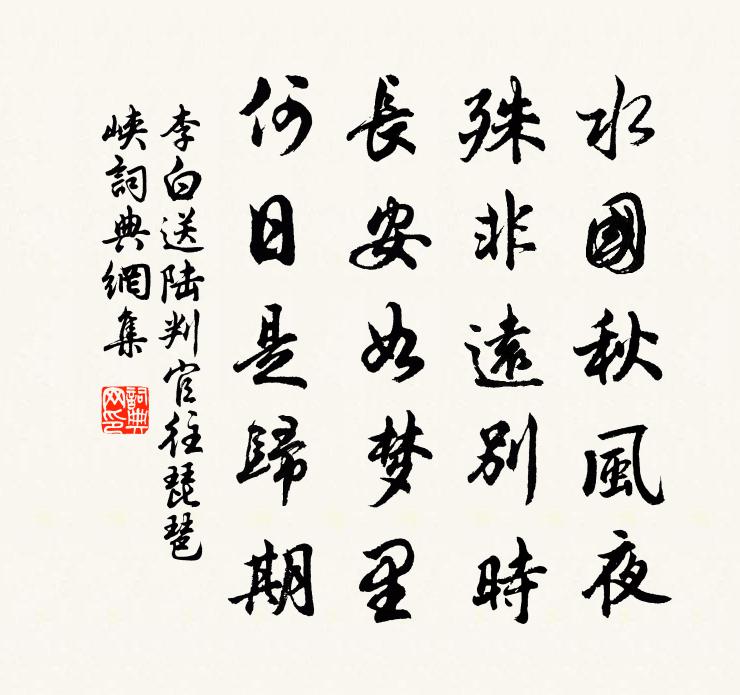 水國秋風夜
殊非遠別時
長安如梦里
何日是歸期
李白送陆判官往琵琶
峡詞典網集
詞典
网印